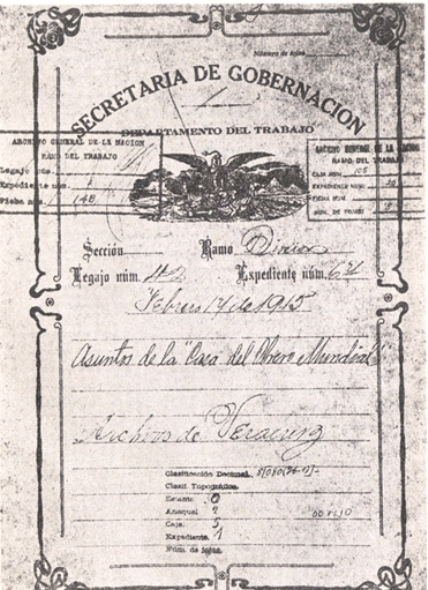 Número de fojas
SECRETARIA DE GOBERNACION
1
DEPARTAMENTO DEL TRABAJO
ARCHIVO GENERAL DE LA NACION
RAMO DEL TRABAJO
Legajo núm.
Expediente núm.
Ficha núm. 148
ARCHIVO GENERAL DE LA NACION
RAMO DEL TRABAJO
CAJA NUM. 108
EXPEDIENTE NUM.
FICHA NUM.
NUM. DE FOJAS
Sección Ramo
Legajo núm. 42 Expediente núm.
Febrero 17 de 1915
Asuntos de la "Casa del Obrero Mundial"
Archivos de Veracruz
Clasificación Decimal.
Clasif. Topográfica.
Estante. 0
Anaquel 2
Caja. 5
Expediente. 1
Núm. de fojas.